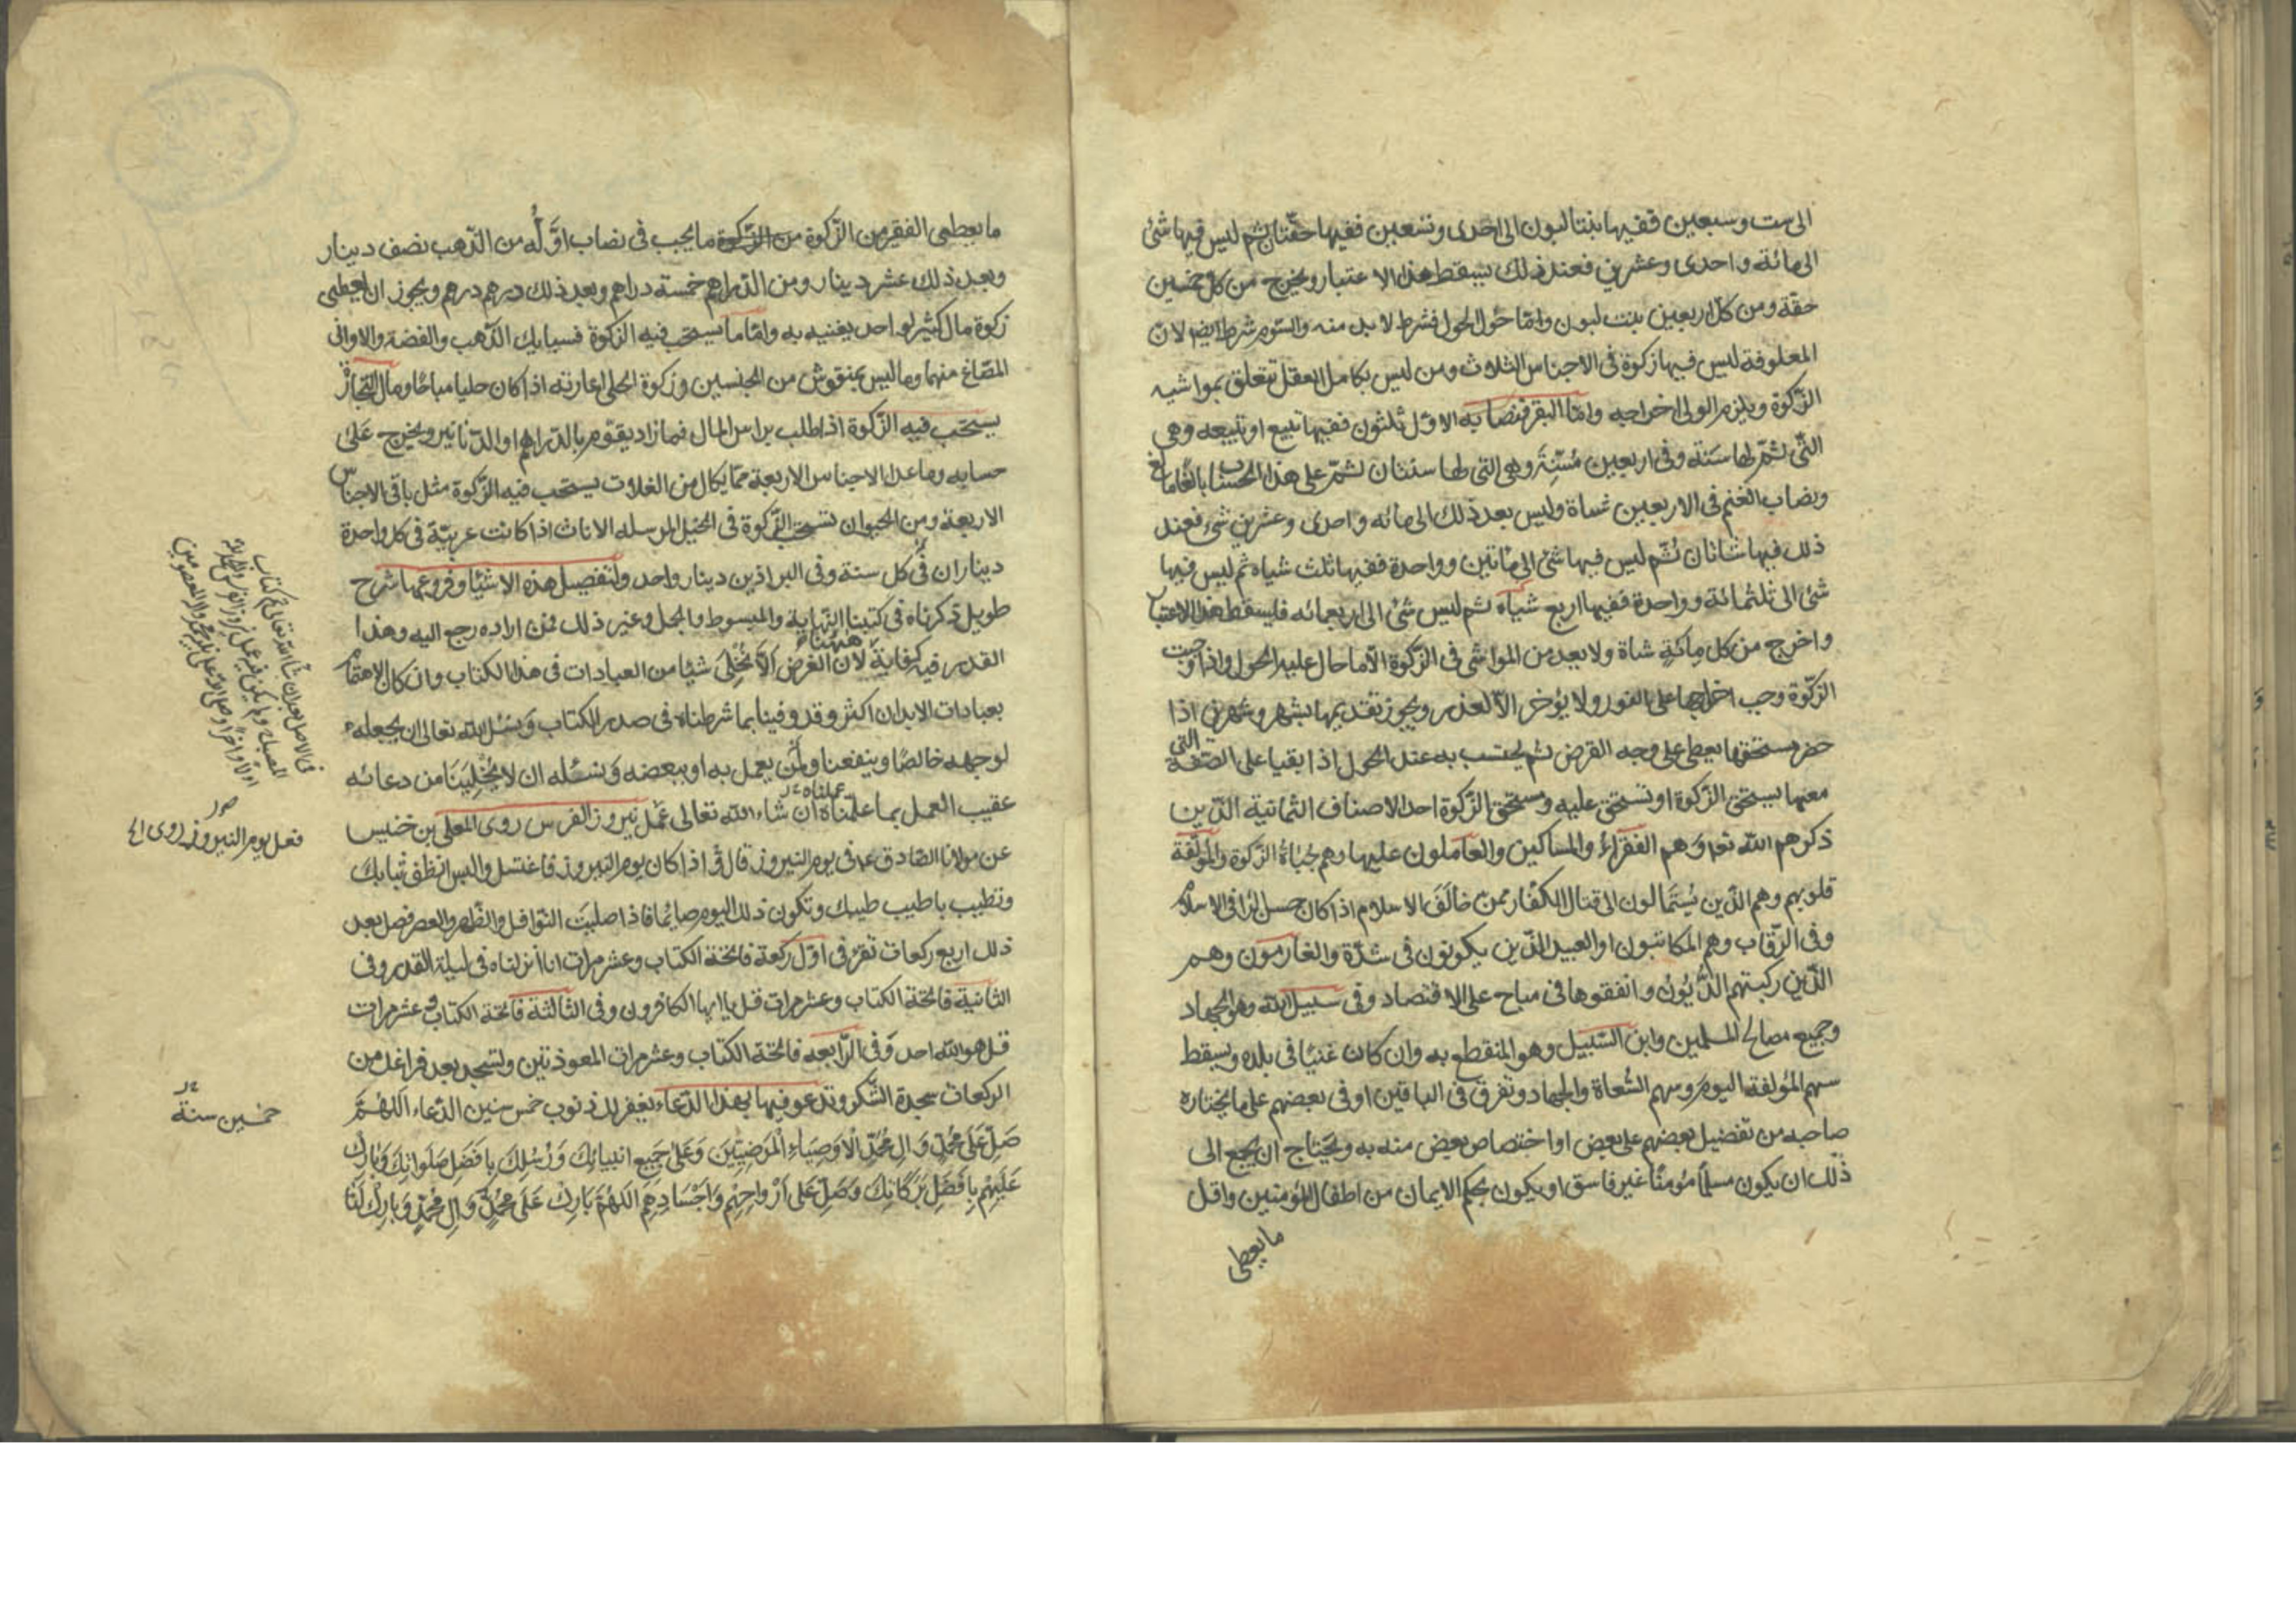 الى ست وسبعين ففيها بنتا لبون الى احدى وتسعين ففيها حقّتان ثم ليس فيها شئ
الى مائة واحدى وعشرين فعند ذلك يسقط هذا الاعتبار ويخرج من كل خمسين
حقة ومن كل اربعين بنت لبون وامّا حول الحول فشرط لابد منه والسّوم شرط ايضا لان
المعلوفة ليس فيها زكوة فى الاجناس الثلاث ومن ليس بكامل العقل تتعلق بمواشيه
الزّكوة ويلزم الولى اخراجه وامّا البقر فنصابه الاوّل ثلثون ففيها تبيع او تبيعه وهى
التّى تمّ لها سَنَة وفى اربعين مُسّنِة وهى التى لها سنتان ثمّ على هذا الحساب بالغًا ما بلغ
ونصاب الغنم فى الاربعين شاة وليس بعد ذلك الى مائه واحدى وعشرين شئ فعند
ذلك فيها شاتان ثُمّ ليس فيها شئ الى مأتين وواحدة ففيها ثلث شياه ثم ليس فيها
شئ الى ثلثمائة وواحدة ففيها اربع شياه ثم ليس شئ الى اربعمائه فليسقط هذا الاعتبار
واخرج من كل مِائَةٍ شاة ولا يعد من المواشى فى الزّكوة الّا ما حال عليه الحول واذا وجبت
الزّكوة وجب اخراجها على الفور ولا يؤخر الّا لعذر ويجوز تقديمها بشهر وشهرين اذا
حضر مستحقها يعطى على وجه القرض ثم يحتسب به عند الحول اذا بقيا على الصّفة التى
معها يستحق الزّكوة او تستحق عليه ومستحق الزّكوة احد الاصناف الثمانية الذّين
ذكرهم اللّه تعا وَهم الفقرَاءُ والمساكين والعاملون عليها وهم جُبَاةُ الزّكوة والمؤلّفة
قلوبهم وهم الذّين يُستَمالون الى قتال الكفّار ممّن خالَفَ الاسلام اذا كان حسن الرّا فى الاسلام
وفى الرّقاب وهم المكاتبون او العبيد الذّين يكونون فى شدّة والغارمون وهم
الّذين ركبتهم الدُّيُون وانفقوها فى مباح على الاقتصاد وفى سبيل اللّه وهو الجهاد
وجميع مصالح المسلمين وابن السّبيل وهو المنقطع به وان كان غنيًا فى بلده ويسقط
سهم المؤلفة اليوم وسهم السُّعاة والجهاد وتفرق فى الباقين او فى بعضهم على ما يختاره
صاحبه من تفضيل بعضهم على بعض او اختصاص بعض منه به ويحتاج ان يجمع الى
ذلك ان يكون مسلمًا مؤمنًا غير فاسق او يكون بحكم الايمان من اطفال المؤمنين واقل
ما يعطى
ما يعطى الفقير من الزّكوة من الزّكوة ما يجب فى نصاب اوَّلُه من الذّهب نصف دينار
وبعد ذلك عشر دينار ومن الدّراهم خمسة دراهم وبعد ذلك درهم درهم ويجوز ان يعطى
زكوة مال كثير لواحد يغنيه به وامّا ما يستحب فيه الزكوة فسبايك الذّهب والفضة والاوانى
المصّاغ منهما وما ليس بمنقوش من الجنسين وزكوة الحلى اعارته اذا كان حليا مباحًا ومال التّجارة
يستحّب فيه الزّكوة اذا طلب براس المال فما زاد يقوّم بالدّراهم او الدّنانير ويخرج على
حسابه وما عدا الاجناس الاربعة ممّا يكال من الغلات يستحب فيه الزّكوة مثل باقى الاجناس
الاربعة ومن الحيوان تستحب الزّكوة فى الخيل المرسله الاناث اذا كانت عربيّة فى كل واحدة
ديناران فى كل سنة وفى البراذين دينار واحد ولتفصيل هذه الاشيَا وفروعها شرح
طويل ذكرناه فى كتبنا النهاية والمبسوط والجمل وغير ذلك فمن اراده رجع اليه وهذا
القدر فيه كفاية ههنا لأن الغرض ألّا نُخلِىَ شيئا من العبادات فى هذا الكتاب وان كان الاهتمام
بعبادات الابدان اكثر وقد وفينا بما شرطناه فى صدر الكتاب وَنسئل اللّه تعالى ان يجعله
لوجهه خالصًا وينفعنا ولمن يعمل به او ببعضه وَنسئله ان لا يُخلِيَنَا من دعائه
عقيب العمل بما علّمناه عملناه ان شاء اللّه تعالى عَمَل نيروز الفرس روى المعلّى بن خنيس
عن مولانا الصّادق ع فى يوم النيروز قال اذا كان يوم النيروز فاغتسل والبس انظف ثيابك
وتطيب باطيب طيبك وتكون ذلك اليوم صائما فاذا صليت النّوافل والظّهر والعصر فصل بعد
ذلك اربع ركعات تقرء فى اوّل ركعة فاتحة الكتاب وعشر مرات انا انزلناه فى ليلة القدر وفى
الثانية فاتحة الكتاب وعشر مرات قل يا ايها الكافرون وفى الثالثة فاتحة الكتاب وعشر مرات
قل هو اللّه احد وَفى الرّابعه فاتحة الكتاب وعشر مرات المعوذتين وتسجد بعد فراغك من
الركعات سجدة الشّكر وتدعو فيها بهذا الدّعاء يغفر لك ذنوب خمس سنين الدّعاء اَللهُمَّ
صَلِّ عَلَى مُحَمّدٍ وَالِ مُحَمّدٍ الْاَوصِيَاءِ الْمَرضِيّيَنَ وَعَلَى جَمِيعِ انبيائِكَ وَرُسُلِكَ بِافضَلِ صَلَوَاتِكَ وَبارِك
عَلَيهِم بِافضَلِ بَرَكَاتِكَ وَصَلِّ عَلى اَرْوَاحِهِم وَاَجْسَادِهِم اَللهُمَّ بَارِكْ عَلَى مُحَمّدٍ وَالِ مُحَمّدٍ وَبارِكْ لَنا
فعل يوم النيروز روى الخ
خمسين سنة